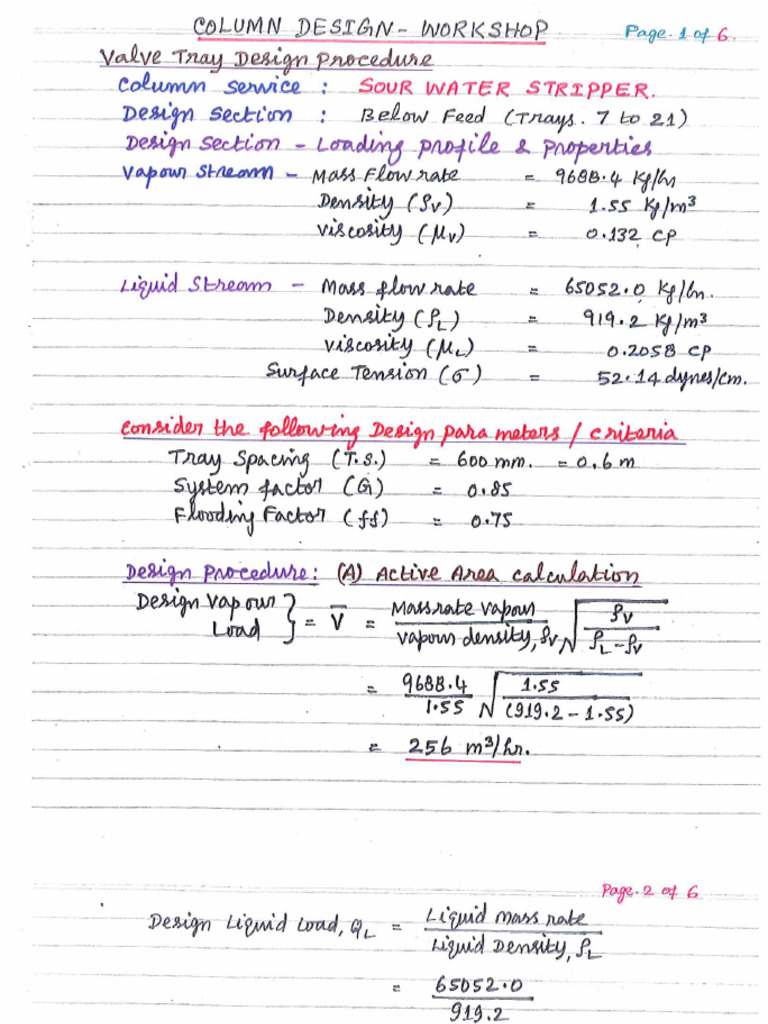 COLUMN DESIGN - WORKSHOP
Page. 1 of 6.
Valve Tray Design Procedure
Column Service : SOUR WATER STRIPPER.
Design Section : Below Feed (Trays. 7 to 21)
Design Section - Loading Profile & Properties
Vapour Stream - Mass Flow rate = 9688.4 Kg/hr
Density (ρv) = 1.55 Kg/m³
Viscosity (μv) = 0.132 CP
Liquid Stream - Mass flow rate = 65052.0 Kg/hr.
Density (ρL) = 919.2 Kg/m³
Viscosity (μL) = 0.2058 CP
Surface Tension (σ) = 52.14 dynes/cm.
Consider the following Design parameters / criteria
Tray Spacing (T.S.) = 600 mm. = 0.6 m
System factor (G) = 0.85
Flooding Factor (ff) = 0.75
Design Procedure: (A) Active Area calculation
Design Vapour Load } = V̅ = Mass rate vapour / vapour density, ρv √ ρv / ρL - ρv
= 9688.4 / 1.55 √ 1.55 / (919.2 - 1.55)
= 256 m³/hr.
Page. 2 of 6
Design Liquid Load, QL = Liquid mass rate / Liquid Density, ρL
= 65052.0 / 919.2